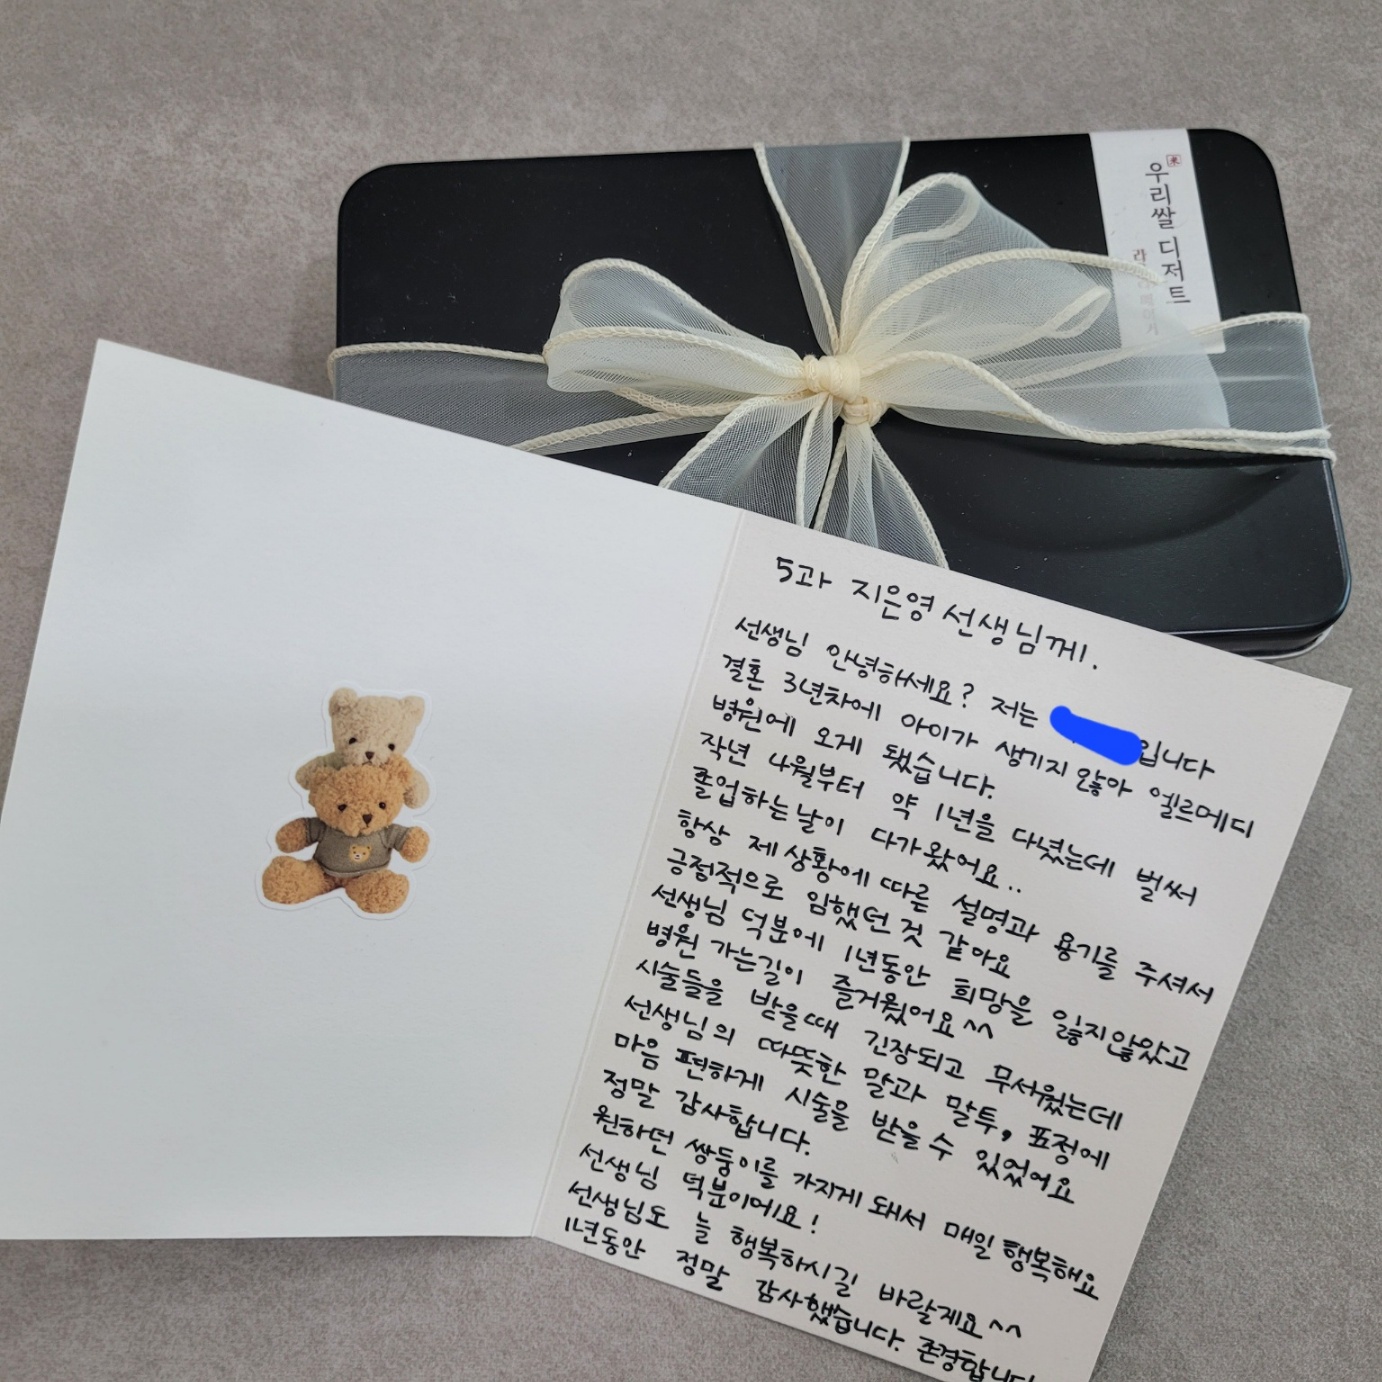 우리쌀 디저트
5과 지은영 선생님께.
선생님 안녕하세요? 저는 입니다
결혼 3년차에 아이가 생기지 않아 엘르메디
병원에 오게 됐습니다.
작년 4월부터 약 1년을 다녔는데 벌써
졸업하는날이 다가왔어요..
항상 제상황에 따른 설명과 용기를 주셔서
긍정적으로 임했던것 같아요
선생님 덕분에 1년동안 희망을 잃지않았고
병원 가는길이 즐거웠어요^^
시술들을 받을때 긴장되고 무서웠는데
선생님의 따뜻한 말과 말투, 표정에
마음 편하게 시술을 받을수 있었어요
정말 감사합니다.
원하던 쌍둥이를 가지게 돼서 매일 행복해요
선생님 덕분이에요!
선생님도 늘 행복하시길 바랄게요^^
1년동안 정말 감사했습니다. 존경합니다